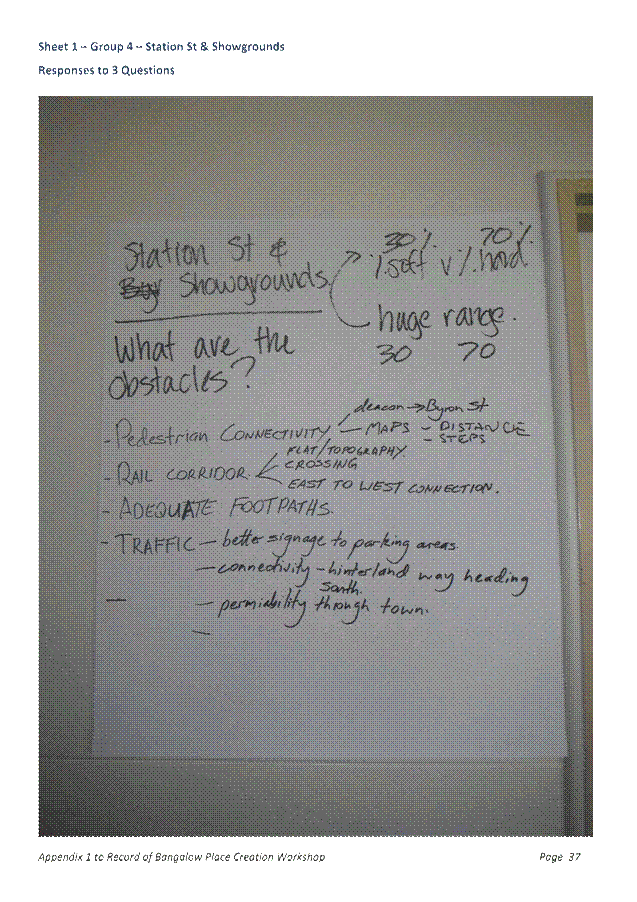 Sheet 1 – Group 4 – Station St & Showgrounds
Responses to 3 Questions
Station St &
Showgrounds
30% 70%
% soft v % hard
huge range.
30 70
What are the
obstacles?
deacon → Byron St
- Pedestrian CONNECTIVITY — MAPS - DISTANCE
- STEPS
FLAT/TOPOGRAPHY
- RAIL CORRIDOR CROSSING
EAST TO WEST CONNECTION.
- ADEQUATE FOOTPATHS.
- TRAFFIC — better signage to parking areas.
— connectivity - hinterland way heading
South.
— permiability through town.
Appendix 1 to Record of Bangalow Place Creation Workshop
Page 37